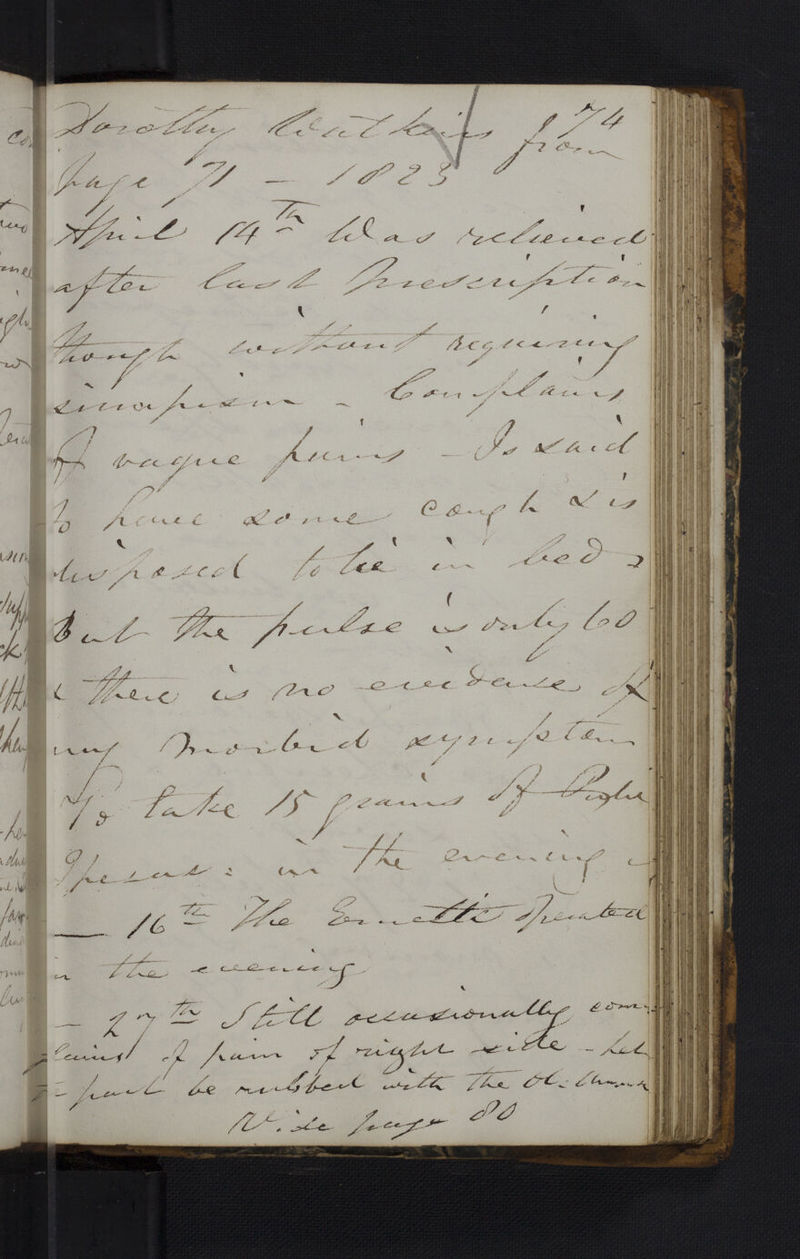 74
Dorothy Watkins from
page 71 - 1823
April 14th Was relieved
after last Prescription
though without requiring
sinapism - Complains
Of vague pains - Is said
to have some cough & is
disposed to lie in bed -
But the pulse is only 60
& there is no evidence of
any morbid symptom
To take 15 grains of Pulv
Ipecac: in the evening
— 16th The Emetic Operated
in the evening
— 27th Still occasionally com-
plains of pain of right side - let
part be rubbed with the Ol:
Vide page 80